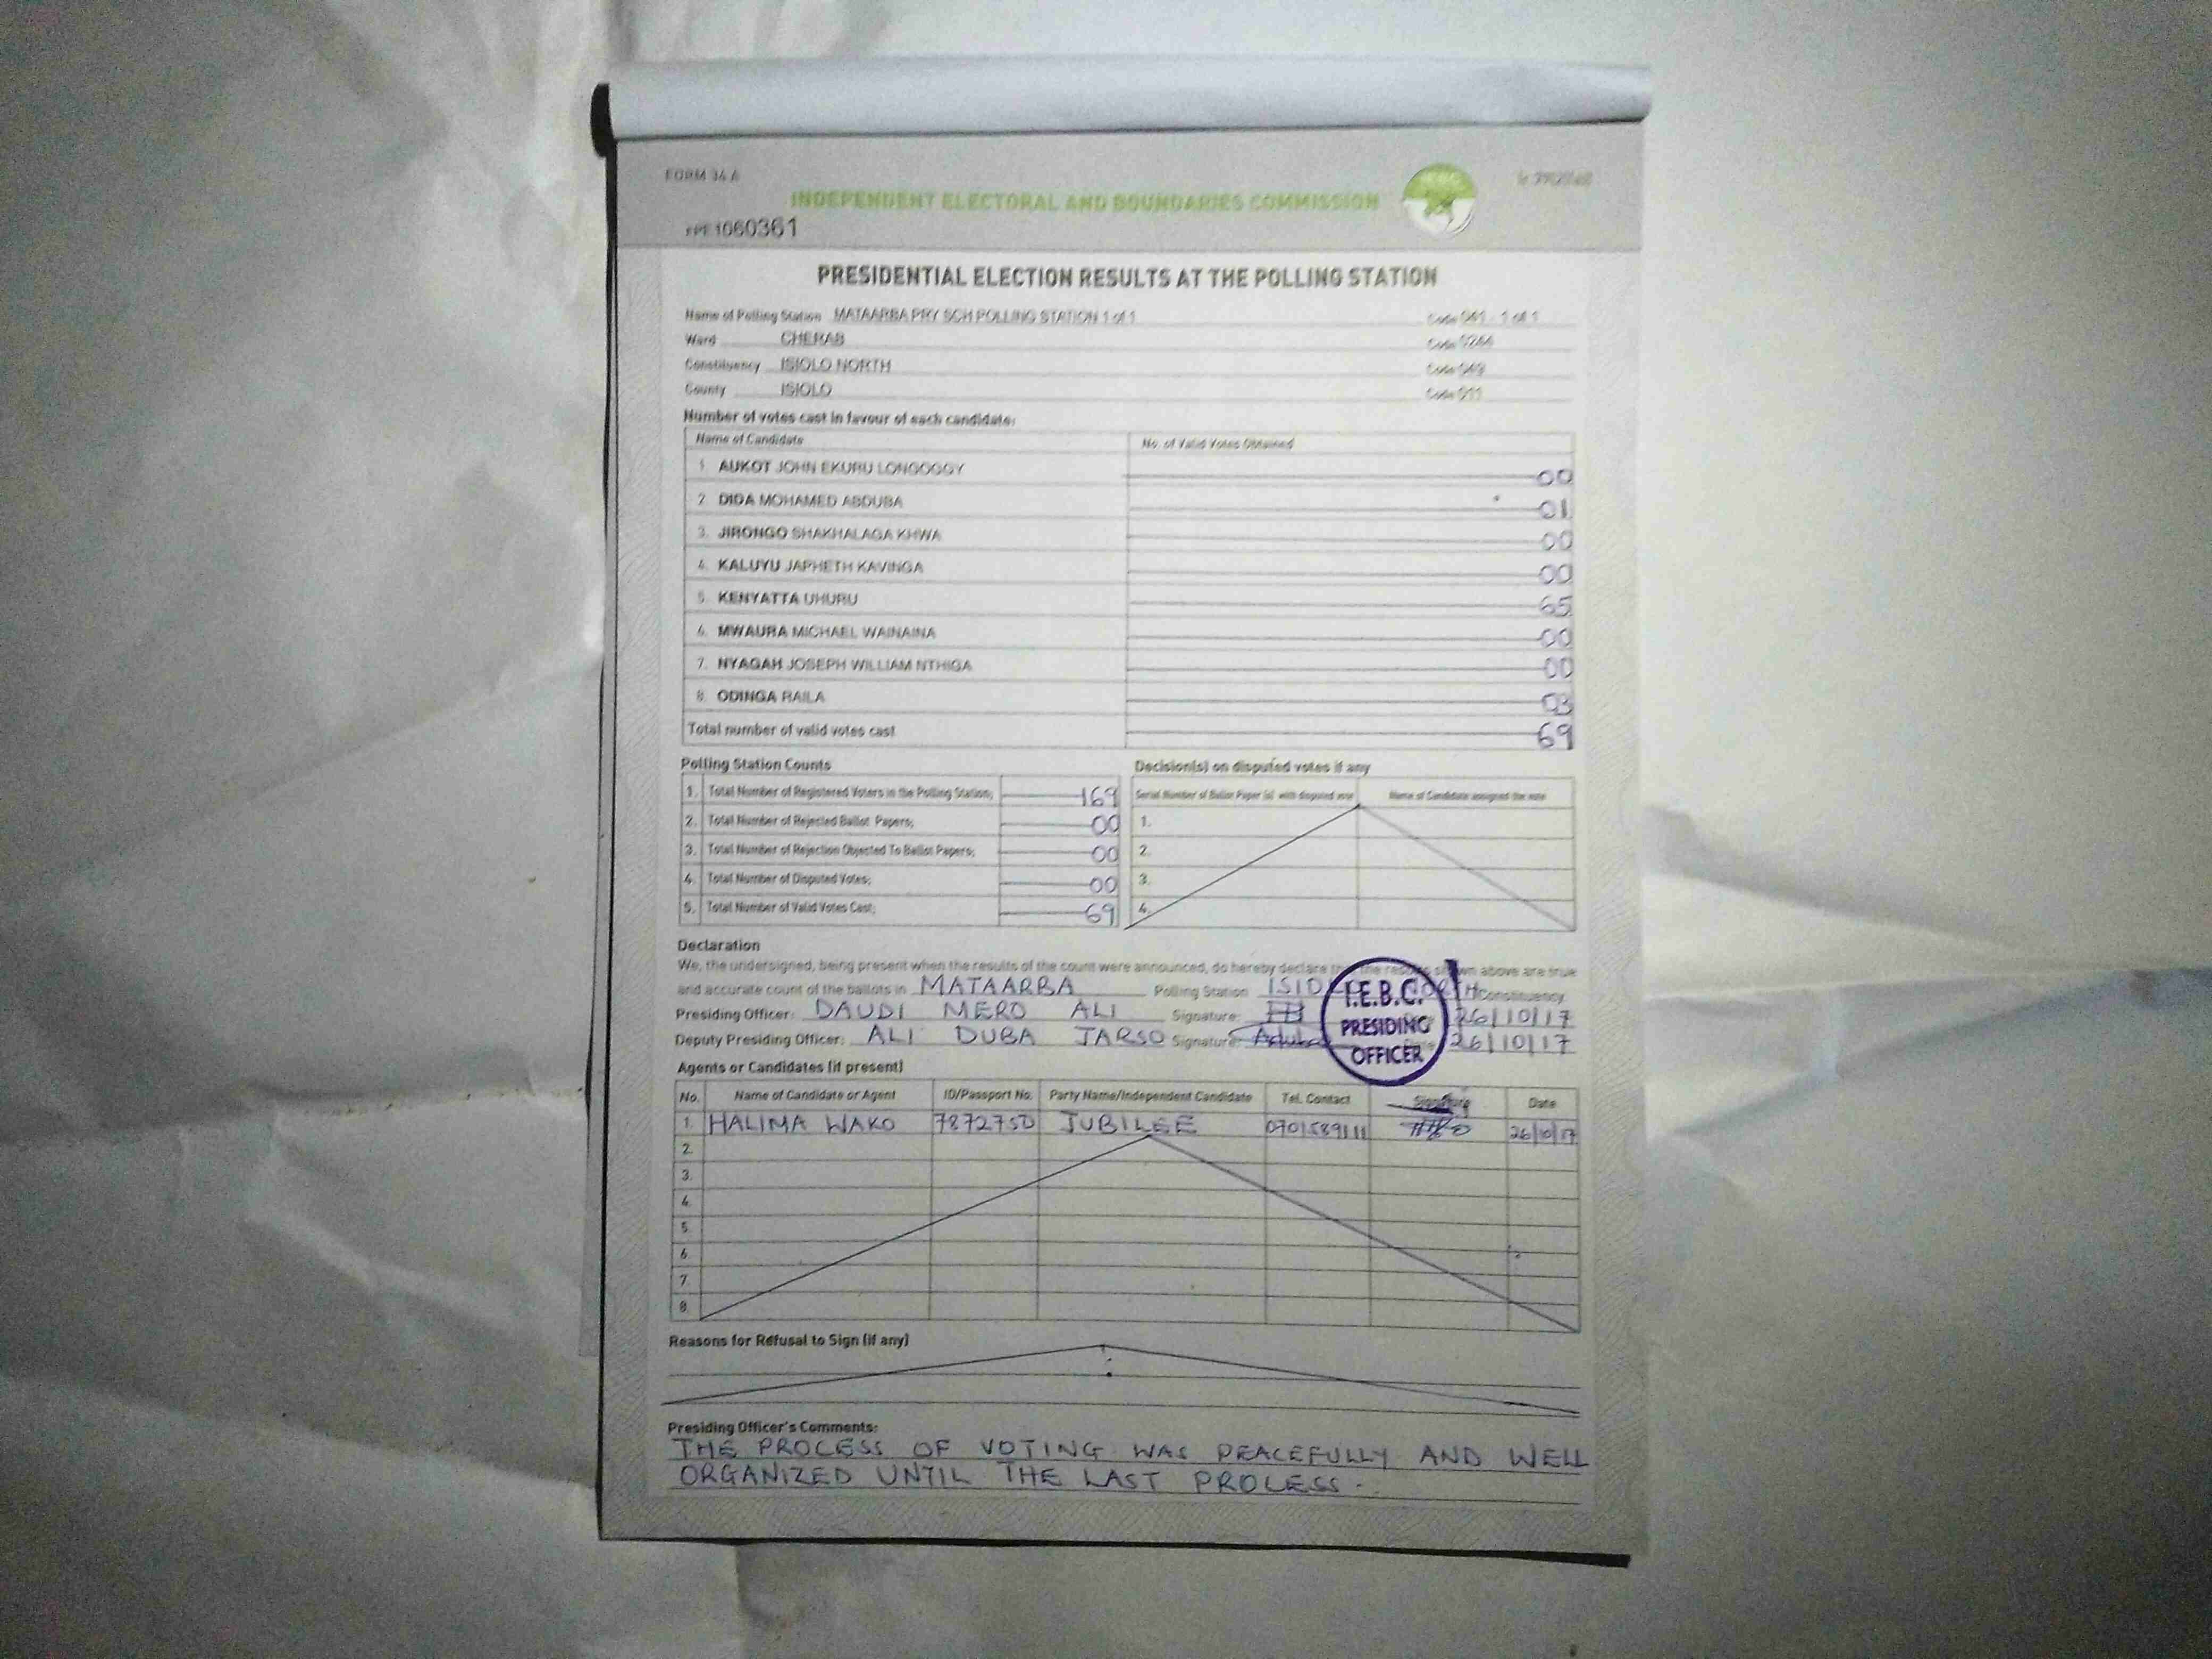 FORM 34 A
INDEPENDENT ELECTORAL AND BOUNDARIES COMMISSION
1060361
PRESIDENTIAL ELECTION RESULTS AT THE POLLING STATION
Name of Polling Station MATAARBA PRY SCH POLLING STATION 1 of 1 Code 1 of 1
Ward CHERAB Code
Constituency ISIOLO NORTH Code
County ISIOLO Code 011
Number of votes cast in favour of each candidate:
Name of Candidate No. of Valid Votes Obtained
1. AUKOT JOHN EKURU LONGOGGY 00
2. DIDA MOHAMED ABDUBA 01
3. JIRONGO SHAKHALAGA KHWA 00
4. KALUYU JAPHETH KAVINGA 00
5. KENYATTA UHURU 65
6. MWAURA MICHAEL WAINAINA 00
7. NYAGAH JOSEPH WILLIAM NTHIGA 00
8. ODINGA RAILA 03
Total number of valid votes cast 69
Polling Station Counts Decision(s) on disputed votes if any
1. Total Number of Registered Voters in the Polling Station; 169 Serial Number of Ballot Paper (s) with disputed vote Name of Candidate assigned the vote
2. Total Number of Rejected Ballot Papers; 00 1.
3. Total Number of Rejection Objected To Ballot Papers; 00 2.
4. Total Number of Disputed Votes; 00 3.
5. Total Number of Valid Votes Cast; 69 4.
Declaration
We, the undersigned, being present when the results of the count were announced, do hereby declare that the results shown above are true
and accurate count of the ballots in MATAARBA Polling Station ISIOLO NORTH Constituency.
Presiding Officer: DAUDI MERO ALI Signature: 26/10/17
Deputy Presiding Officer: ALI DUBA JARSO Signature: Date: 26/10/17
I.E.B.C.
PRESIDING
OFFICER
Agents or Candidates (if present)
No. Name of Candidate or Agent ID/Passport No. Party Name/Independent Candidate Tel. Contact Signature Date
1. HALIMA WAKO 7872750 JUBILEE 0701589111 26/10/17
2.
3.
4.
5.
6.
7.
8.
Reasons for Refusal to Sign (if any)
Presiding Officer's Comments:
THE PROCESS OF VOTING WAS PEACEFULLY AND WELL
ORGANIZED UNTIL THE LAST PROCESS.